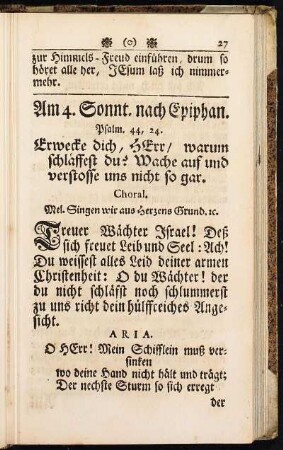 (o) 27
zur Himmels-Freud einführen, drum so
höret alle her, JEsum laß ich nimmer-
mehr.
Am 4. Sonnt. nach Epiphan.
Psalm. 44, 24.
Erwecke dich, HErr/ warum
schläffest du? Wache auf und
verstosse uns nicht so gar.
Choral.
Mel. Singen wir aus Herzens Grund. ꝛc.
Treuer Wächter Israel! Deß
sich freuet Leib und Seel: Ach!
Du weissest alles Leid deiner armen
Christenheit: O du Wächter! der
du nicht schläfst noch schlummerst
zu uns richt dein hülffreiches Ange-
sicht.
ARIA.
O HErr! Mein Schifflein muß ver-
sinken
wo deine Hand nicht hält und trägt;
Der nechste Sturm so sich erregt
der